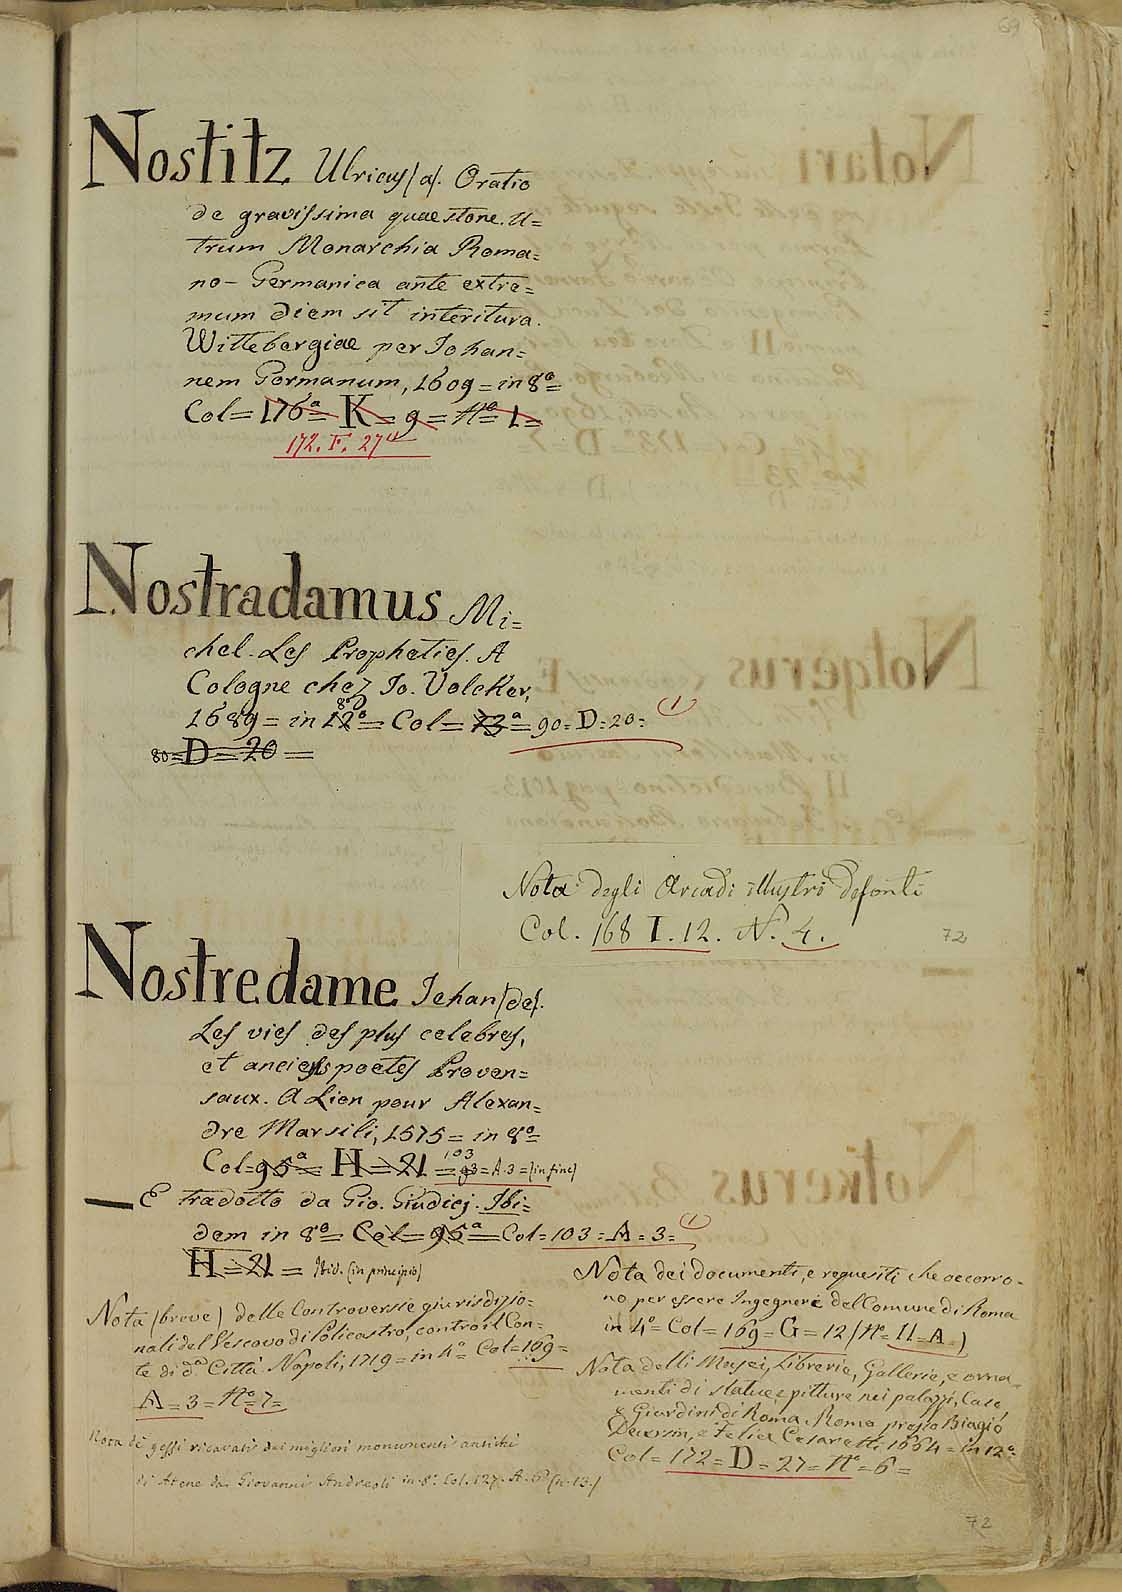 69
Nostitz Ulricus (a). Oratio
de gravissima quaestone. U=
trum Monarchia Roma=
no-Germanica ante extre=
mum diem sit interitura.
Wittebergiae per Johan=
nem Gormanum, 1609 = in 8º =
Col = 176ª = K = 9 = Nº = 1 =
172. F. 27
Nostradamus Mi=
chel. Les Propheties. A
Cologne chez Jo. Volcker,
1689 = in 12º = Col = 73ª = 90 = D = 20 = (1)
8º
80 = D = 20 =
Nota degli Arcadi illustri defonti
Col. 168 I. 12. N. 4.
72
Nostredame Jehan (de).
Les vies des plus celebres,
et anciens poetes Proven=
saux. A Lion pour Alexan=
dre Marsili, 1575 = in 8º =
Col = 95ª = H = 21 = 93 = A. 3 = (in fine)
103
— E tradotto da Gio. Giudici. Ibi=
dem in 8º = Col = 95ª = Col = 103 = A = 3 = (1)
H = 21 = Ibid. (in principio)
Nota (breve) delle Controversie giurisdizio=
nali del Vescovo di Policastro, contro il Con=
te di d.ª Città. Napoli, 1719 = in 4º Col = 169 =
A = 3 = Nº = 7 =
Nota di gessi ricavati dai migliori monumenti antichi
di Atene da Giovanni Andreoli in 8º Col. 127. A. 6 (n. 13.)
Nota dei documenti, e requisiti che occorro=
no per essere Ingegneri del Comune di Roma
in 4º = Col = 169 = G = 12 (Nº = 11 = A =)
Nota delli Musei, Librerie, Gallerie, e orna=
menti di statue, e pitture nei palazzi, Case,
e Giardini di Roma. Roma presso Biagio
Deversin, e Felice Cesaretti, 1664 = in 12º =
Col = 172 = D = 27 = Nº = 6 =
72